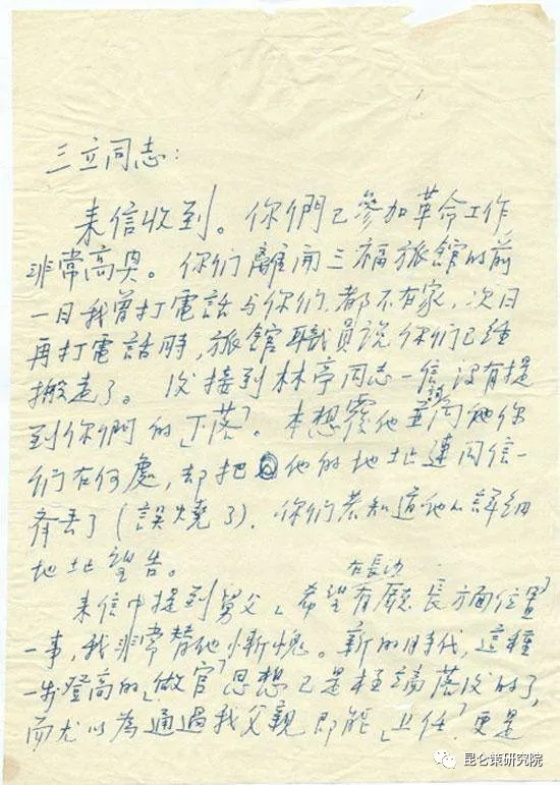 三立同志:
来信收到。你們已參加革命工作
非常高兴。你们離開三福旅館的前
一日我曾打電話与你们,都不在家,次日
再打電話時,旅館職員说你们已経
搬走了。后接到林亭同志一信,没有提
到你們的「下落」。本想覆他並詢他你
们在何處,却把他的地址連同信一
齊丢了(誤燒了)。你们若知道他的詳細
地址望告。
来信中提到舅父「希望在長沙有廳長方面位置」
一事,我非常替他慚愧。新的時代,這種
一步登高的「做官」思想已是極端落後的了,
而尤以為通過我父親即能「上任」,更是
昆仑策研究院